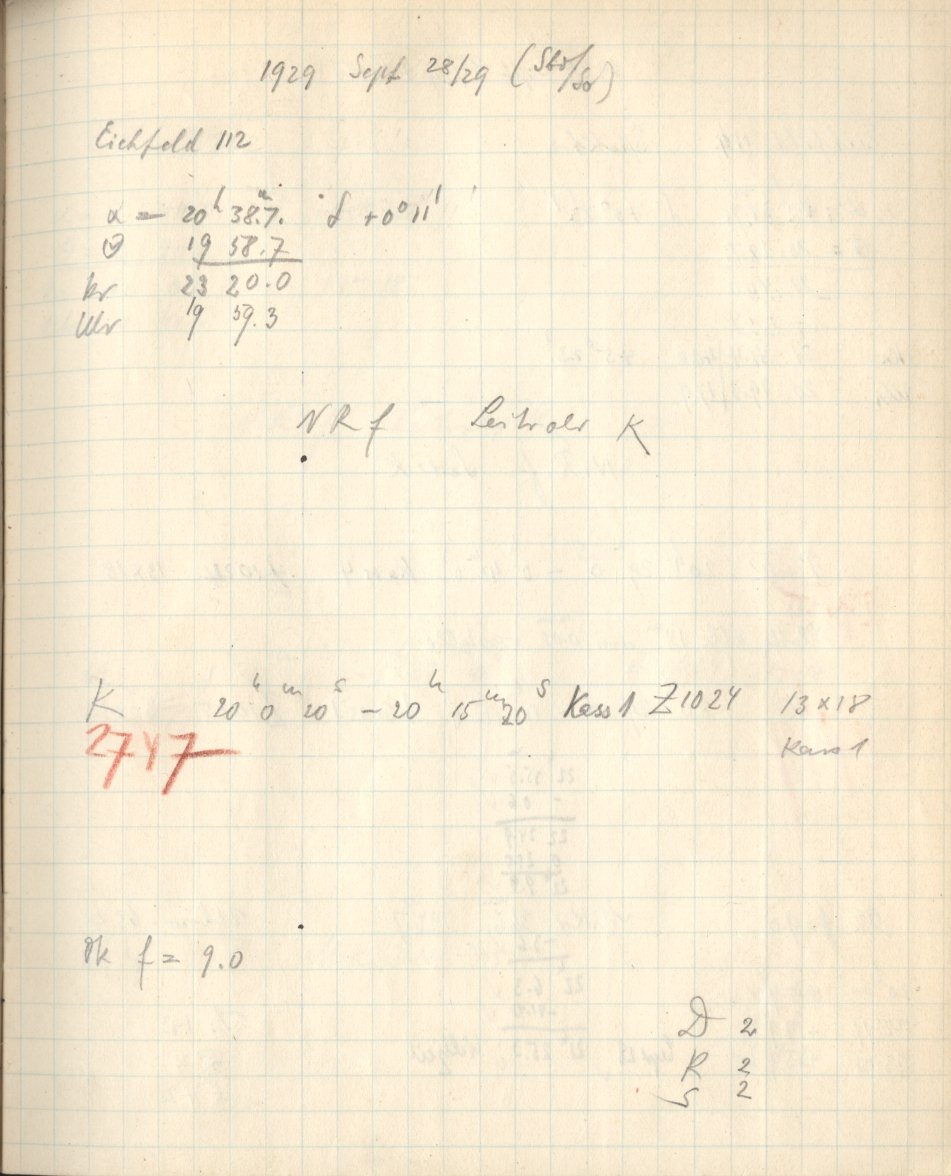 1929 Sept 28/29 (Str/So)
Eichfeld 112
α = 20h 38.7m. δ +0° 11'
19 58.7
Kr 23 20.0
Uhr 19 59.3
NR f Leitrohr K
K 20h 0m 20s – 20h 15m 20s Kass 1 Z1024 13 x 18
2747 Kass 1
Ok f = 9.0
D 2
R 2
S 2